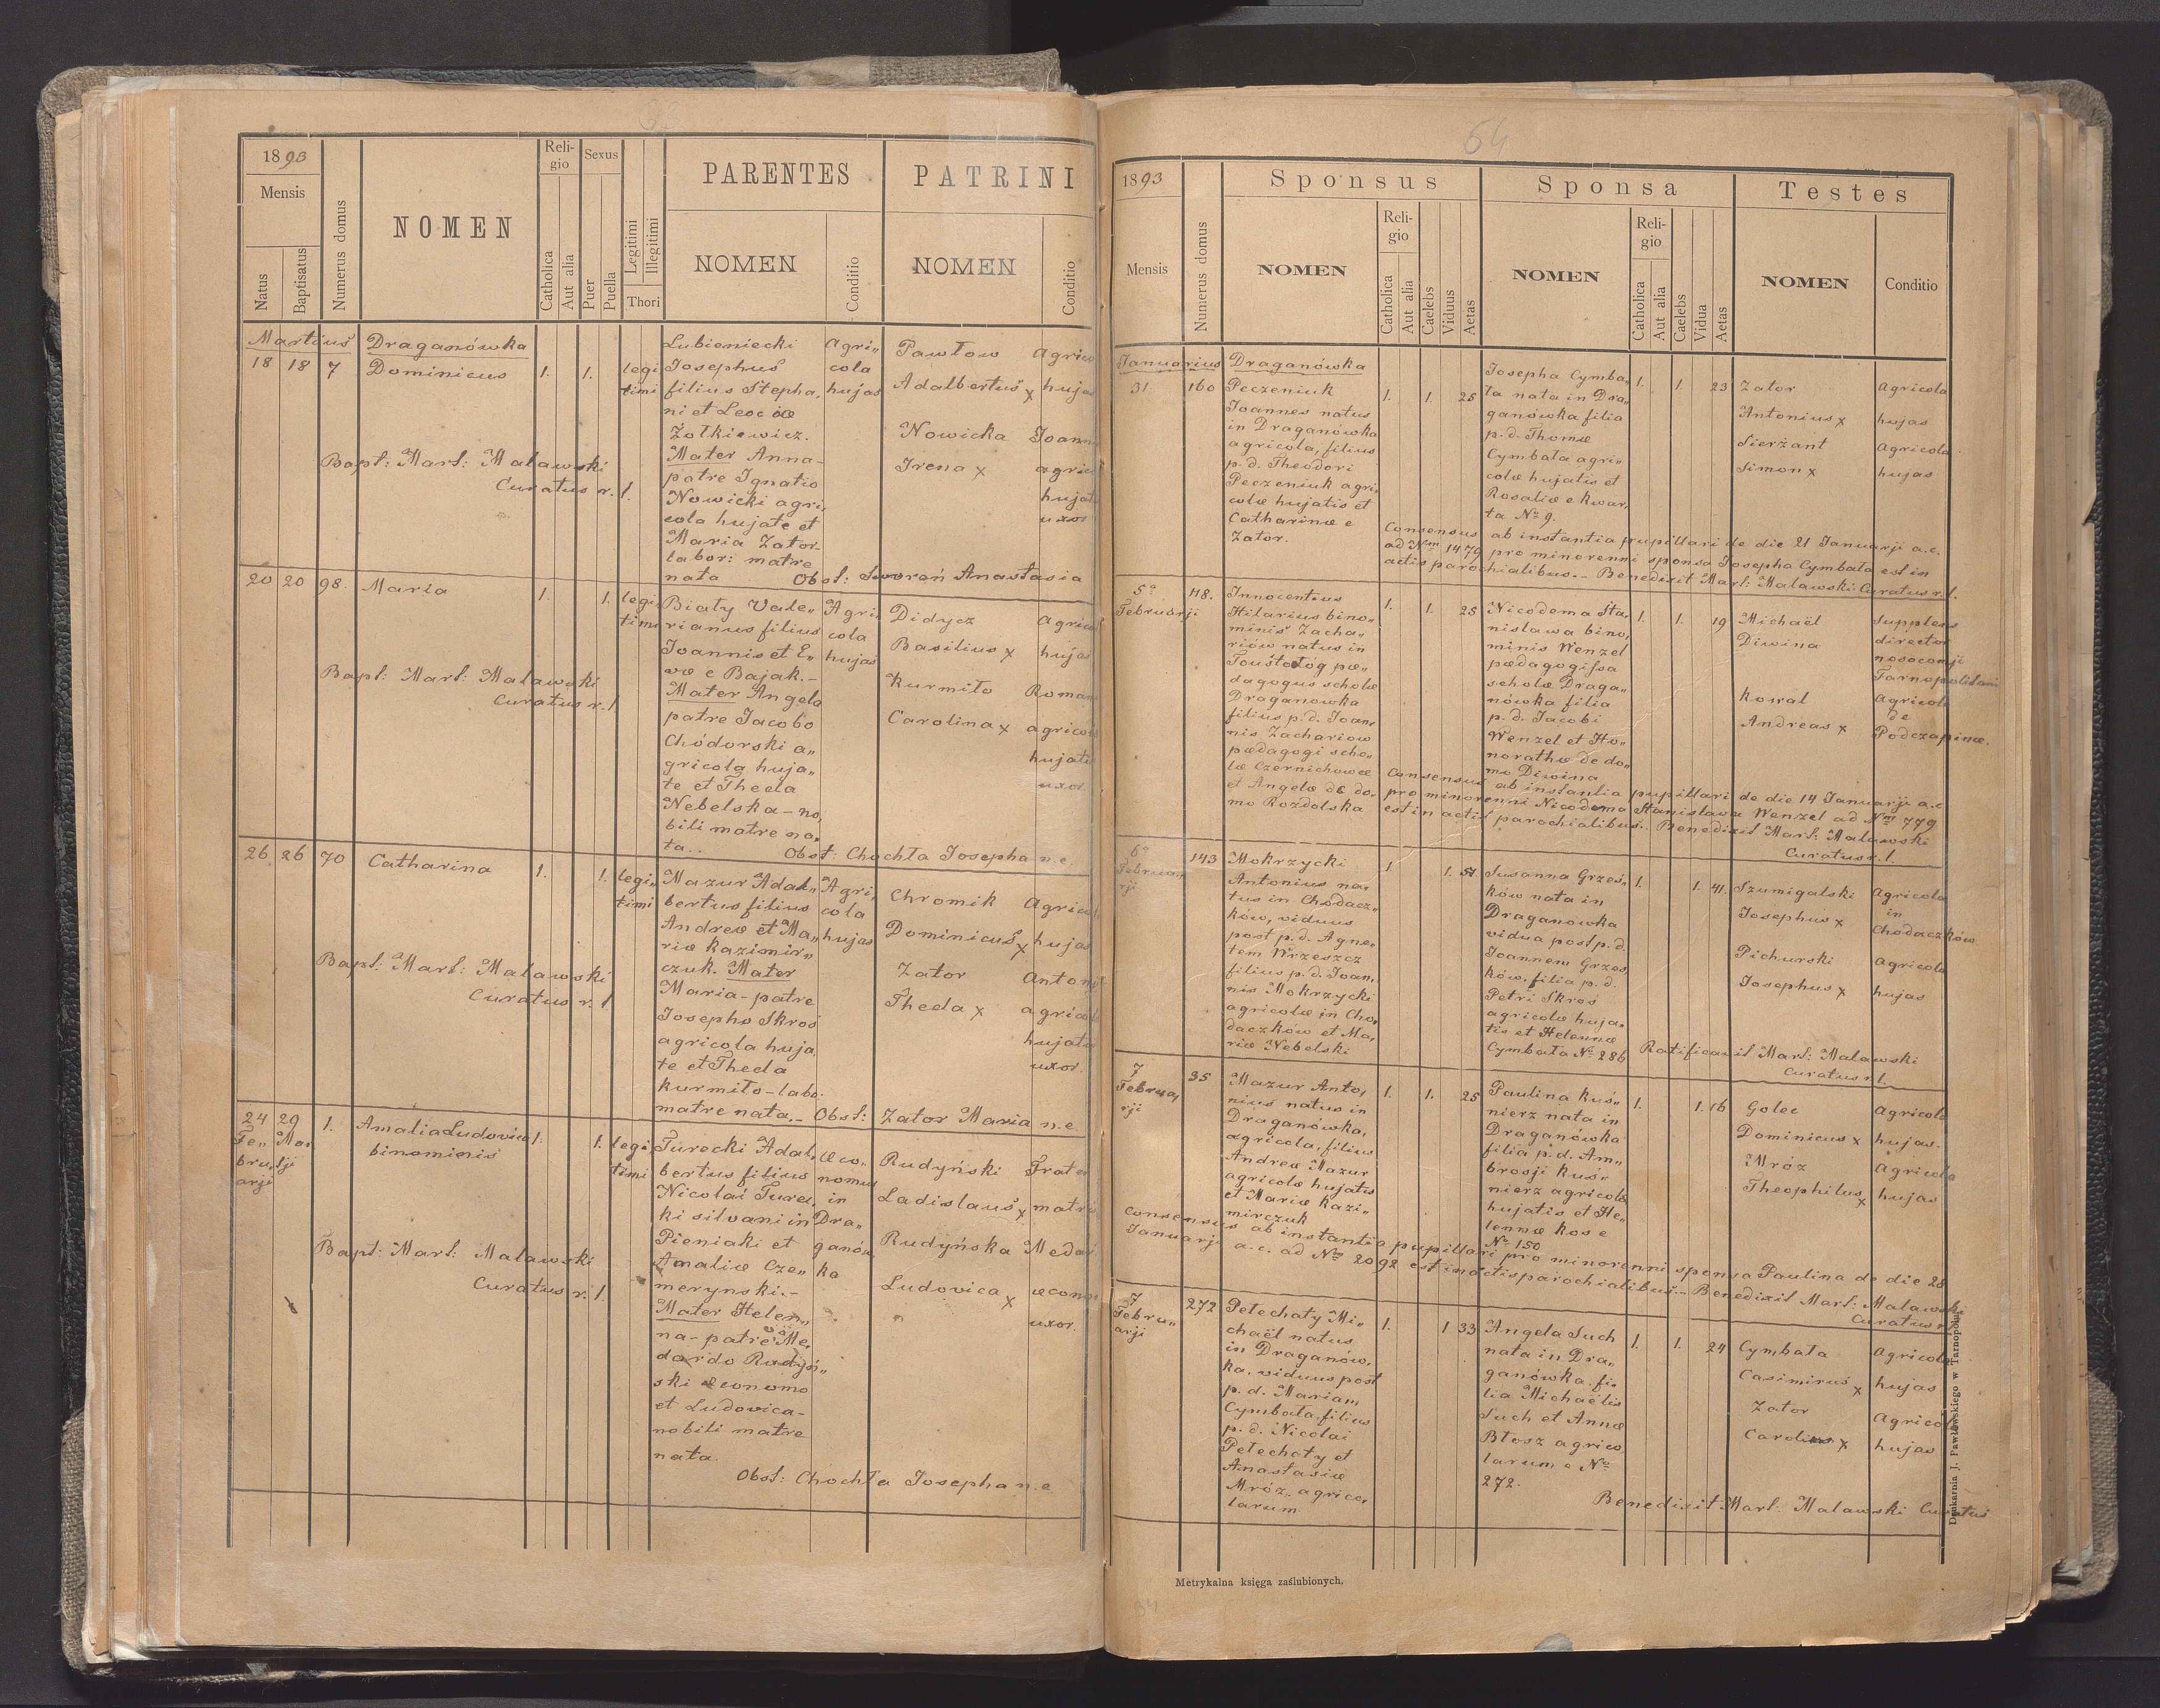 62
1893
Mensis
Natus
Baptisatus
Numerus domus
NOMEN
Religio
Catholica
Aut alia
Sexus
Puer
Puella
Legitimi
Illegitimi
Thori
PARENTES
NOMEN
Conditio
PATRINI
NOMEN
Conditio
Martius Draganówka
18 18 7 Dominicus 1. 1. legi
timi
Lubieniecki
Josephus
filius Stepha,
ni et Leociæ
Żółkiewicz.
Mater Anna-
patre Ignatio
Nowicki agri,
cola hujate et
Maria Zator-
labor: matre
nata
Agri„
cola
hujas
Pawłow
Adalbertus x
Nowicka
Irena x
Agrico
hujas
Joann
agric
hujat
uxor
Bapt: Mart: Malawski
Curatus r. l.
Obst: Sworeń Anastasia
20 20 98. Maria 1. 1. legi,
timi
Biały Vale„
rianus filius
Joannis et E„
væ e Bajak.-
Mater Angela
patre Jacobo
Chódorski a„
gricola huja„
te et Thecla
Nebelska - no,
bili matre na,
ta..
Agri,
cola
hujas
Didycz
Basilius x
Kurmiło
Carolina x
Agrico
hujas
Roman
agrico
hujat
uxor.
Bapt: Mart: Malawski
Curatus r. l
Obst: Chochła Josepha n. e.
26 26 70 Catharina 1. 1. legi„
timi
Mazur Adal„
bertus filius
Andreæ et Ma„
riæ Kazimir„
czuk. Mater
Maria - patre
Josepho Skroś
agricola huja,
te et Thecla
Kurmiło - labo:
matre nata.-
Agri,
cola
hujas
Chromik
Dominicus x
Zator
Thecla x
Agricol
hujas
Antonj
agricol
hujat
uxor.
Bapt: Mart: Malawski
Curatus r. l
Obst: Zator Maria n. e
24 29 1. Amalia Ludovica 1. 1. legi
Fe„ Mar binominis timi
bru, tji
arji
Turecki Adal,
bertus filius
Nicolai Turec,
ki silvani in
Pieniaki et
Amaliæ Cze„
merynski.-
Mater Helen„
na - patre Me,
dardo Rudyń„
ski œconomo
et Ludovica-
nobili matre
nata
œco„
nomus
in
Dra„
ganów
ka
Rudyński
Ladislaus x
Rudyńska
Ludovica x
Frater
matris
Medar
œconom
uxor.
Bapt: Mart: Malawski
Curatus r. l.
Obst: Chochła Josepha n. e
64
1893
Mensis
Numerus domus
Sponsus
NOMEN
Religio
Catholica
Aut alia
Caelebs
Viduus
Aetas
Sponsa
NOMEN
Religio
Catholica
Aut alia
Caelebs
Vidua
Aetas
Testes
NOMEN
Conditio
Januarius Draganówka
31. 160
Peczeniuk
Joannes natus
in Draganówka
agricola, filius
p. d. Theodori
Peczeniuk agri,
colæ hujatis et
Catharinæ e
Zator.
1. 1. 25
Josepha Cymba„
ła nata in Dra„
ganówka filia
p. d. Thomæ
Cymbała agri„
colæ hujatis et
Rosaliæ e Kwar,
ta No 9.
1. 1. 23
Zator
Antonius x
Sierżant
Simon x
Agricola
hujas
Agricola
hujas
Consensus ab instantia pupillari de die 21 Januarji a. c.
ad Num 1479 pro minorenni sponsa Josepha Cymbała est in
actis parochialibus.- Benedixit Mart: Malawski Curatus r. l.
5o
Februarji
118.
Innocentius
Hilarius bino„
minis Zacha„
riów natus in
Toustołog pæ„
dagogus scholæ
Draganówka
filius p. d. Joan,
nis Zachariow
pædagogi scho„
læ Czernichowce
et Angelæ de do-
mo Rozdolska
1. 1. 25
Nicodema Sta,
nisława bino,
minis Wenzel
pædagogissa
scholæ Draga„
nówka filia
p. d. Jacobi
Wenzel et Ho„
norathæ de do„
mo Diwina
1. 1. 19
Michaël
Diwina
Kowal
Andreas x
Supplens
director
nosocomji
Tarnopolitani
Agricola
de
Podczapince.
Consensus ab instantia pupillari de die 14 Januarji a. c
pro minorenni Nicodema Stanisława Wenzel ad Num 779
est in actis parochialibus. Benedixit Mart: Malawski
Curatus r. l.
6o
Februar
rji
143
Mokrzycki
Antonius na„
tus in Chodacz„
ków, viduus
post p. d. Agne„
tem Wrzeszcz
filius p. d. Joan,
nis Mokrzycki
agricolæ in Cho,
daczków et Ma,
riæ Nebelski
1 1. 51
Susanna Grześ„
ków nata in
Draganówka
vidua post p. d.
Joannem Grześ
ków, filia p. d.
Petri Skroś
agricolæ huja„
tis et Helennæ
Cymbała No 286
1. 1. 41.
Szumigalski
Josephus x
Pichurski
Josephus x
Agricola
in
Chodaczków
Agricola
hujas
Ratificavit Mart: Malawski
Curatus r. l.
7
Februa,
rji
35
Mazur Anto,
nius natus in
Draganówka,
agricola, filius
Andreæ Mazur
agricolæ hujatis
et Mariæ Kazi„
mirczuk
1. 1. 25
Paulina Kuś„
nierz nata in
Draganówka
filia p. d. Am„
brosji Kuś„
nierz agricolæ
hujatis et He„
lennæ Kos e
No 150
1. 1. 16
Golec
Dominicus x
Mróz
Theophilus x
Agricola
hujas.
Agricola
hujas
Consensus ab instantia pupillari pro minorenni sponsa Paulina de die 28
Januarji a. c. ad Num 2092 est in actis parochialibus.- Benedixit Mart: Malawski
Curatus r. l
7
Febru„
arji
272
Petechaty Mi„
chaël natus
in Draganów,
ka, viduus post
p. d. Mariam
Cymbała filius
p. d. Nicolai
Petechaty et
Anastasiæ
Mróz, agrico,
larum
1. 1 33
Angela Such
nata in Dra„
ganówka. fi„
lia Michaëlis
Such et Annæ
Błosz agrico
larum e No
272.
1. 1. 24
Cymbała
Casimirus x
Zator
Carolus x
Agricola
hujas
Agricola
hujas
Benedixit. Mart. Malawski Curatus
Drukarnia J. Pawłowskiego w Tarnopolu.
Metrykalna księga zaślubionych.
34